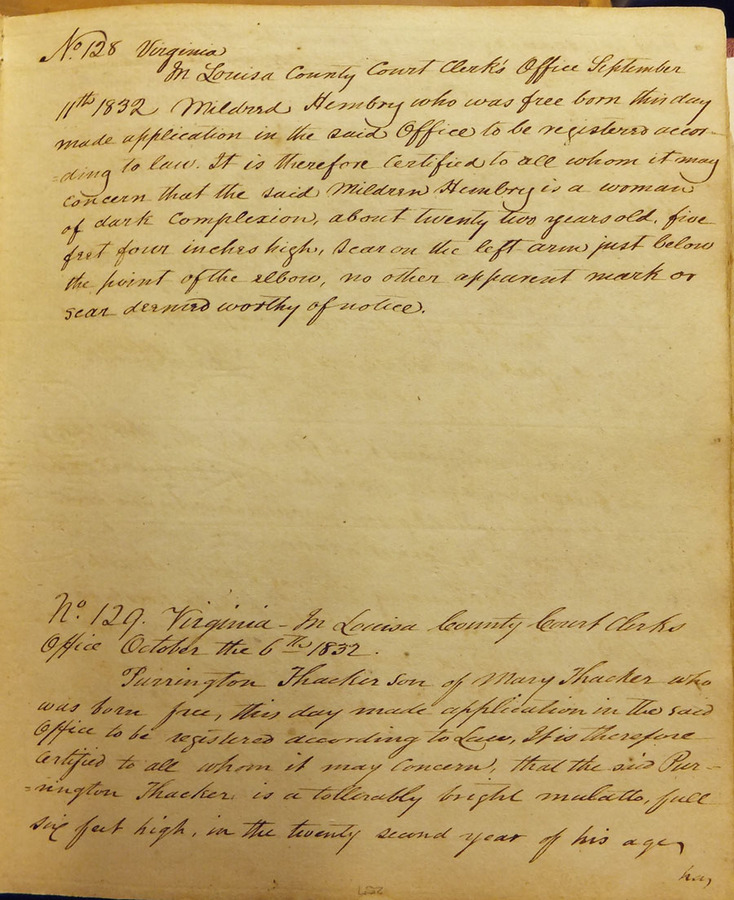 No. 128 Virginia
In Louisa County Court Clerk's Office September
11th 1832 Mildred Hembry who was free born this day
made application in the said Office to be registered accor-
=ding to law. It is therefore Certified to all whom it may
concern that the said Mildren Hembry is a woman
of dark Complexion, about twenty two years old, five
feet four inches high, scar on the left arm just below
the point of the elbow, no other apparent mark or
scar deemed worthy of notice.
No. 129. Virginia - In Louisa County Court Clerks
Office October the 6th 1832.
Purrington Thacker son of Mary Thacker who
was born free, this day made application in the said
Office to be registered according to Law, It is therefore
Certified to all whom it may Concern, that the said Pur-
=rington Thacker is a tollerably bright mulatto, full
six feet high, in the twenty second year of his age,
has,